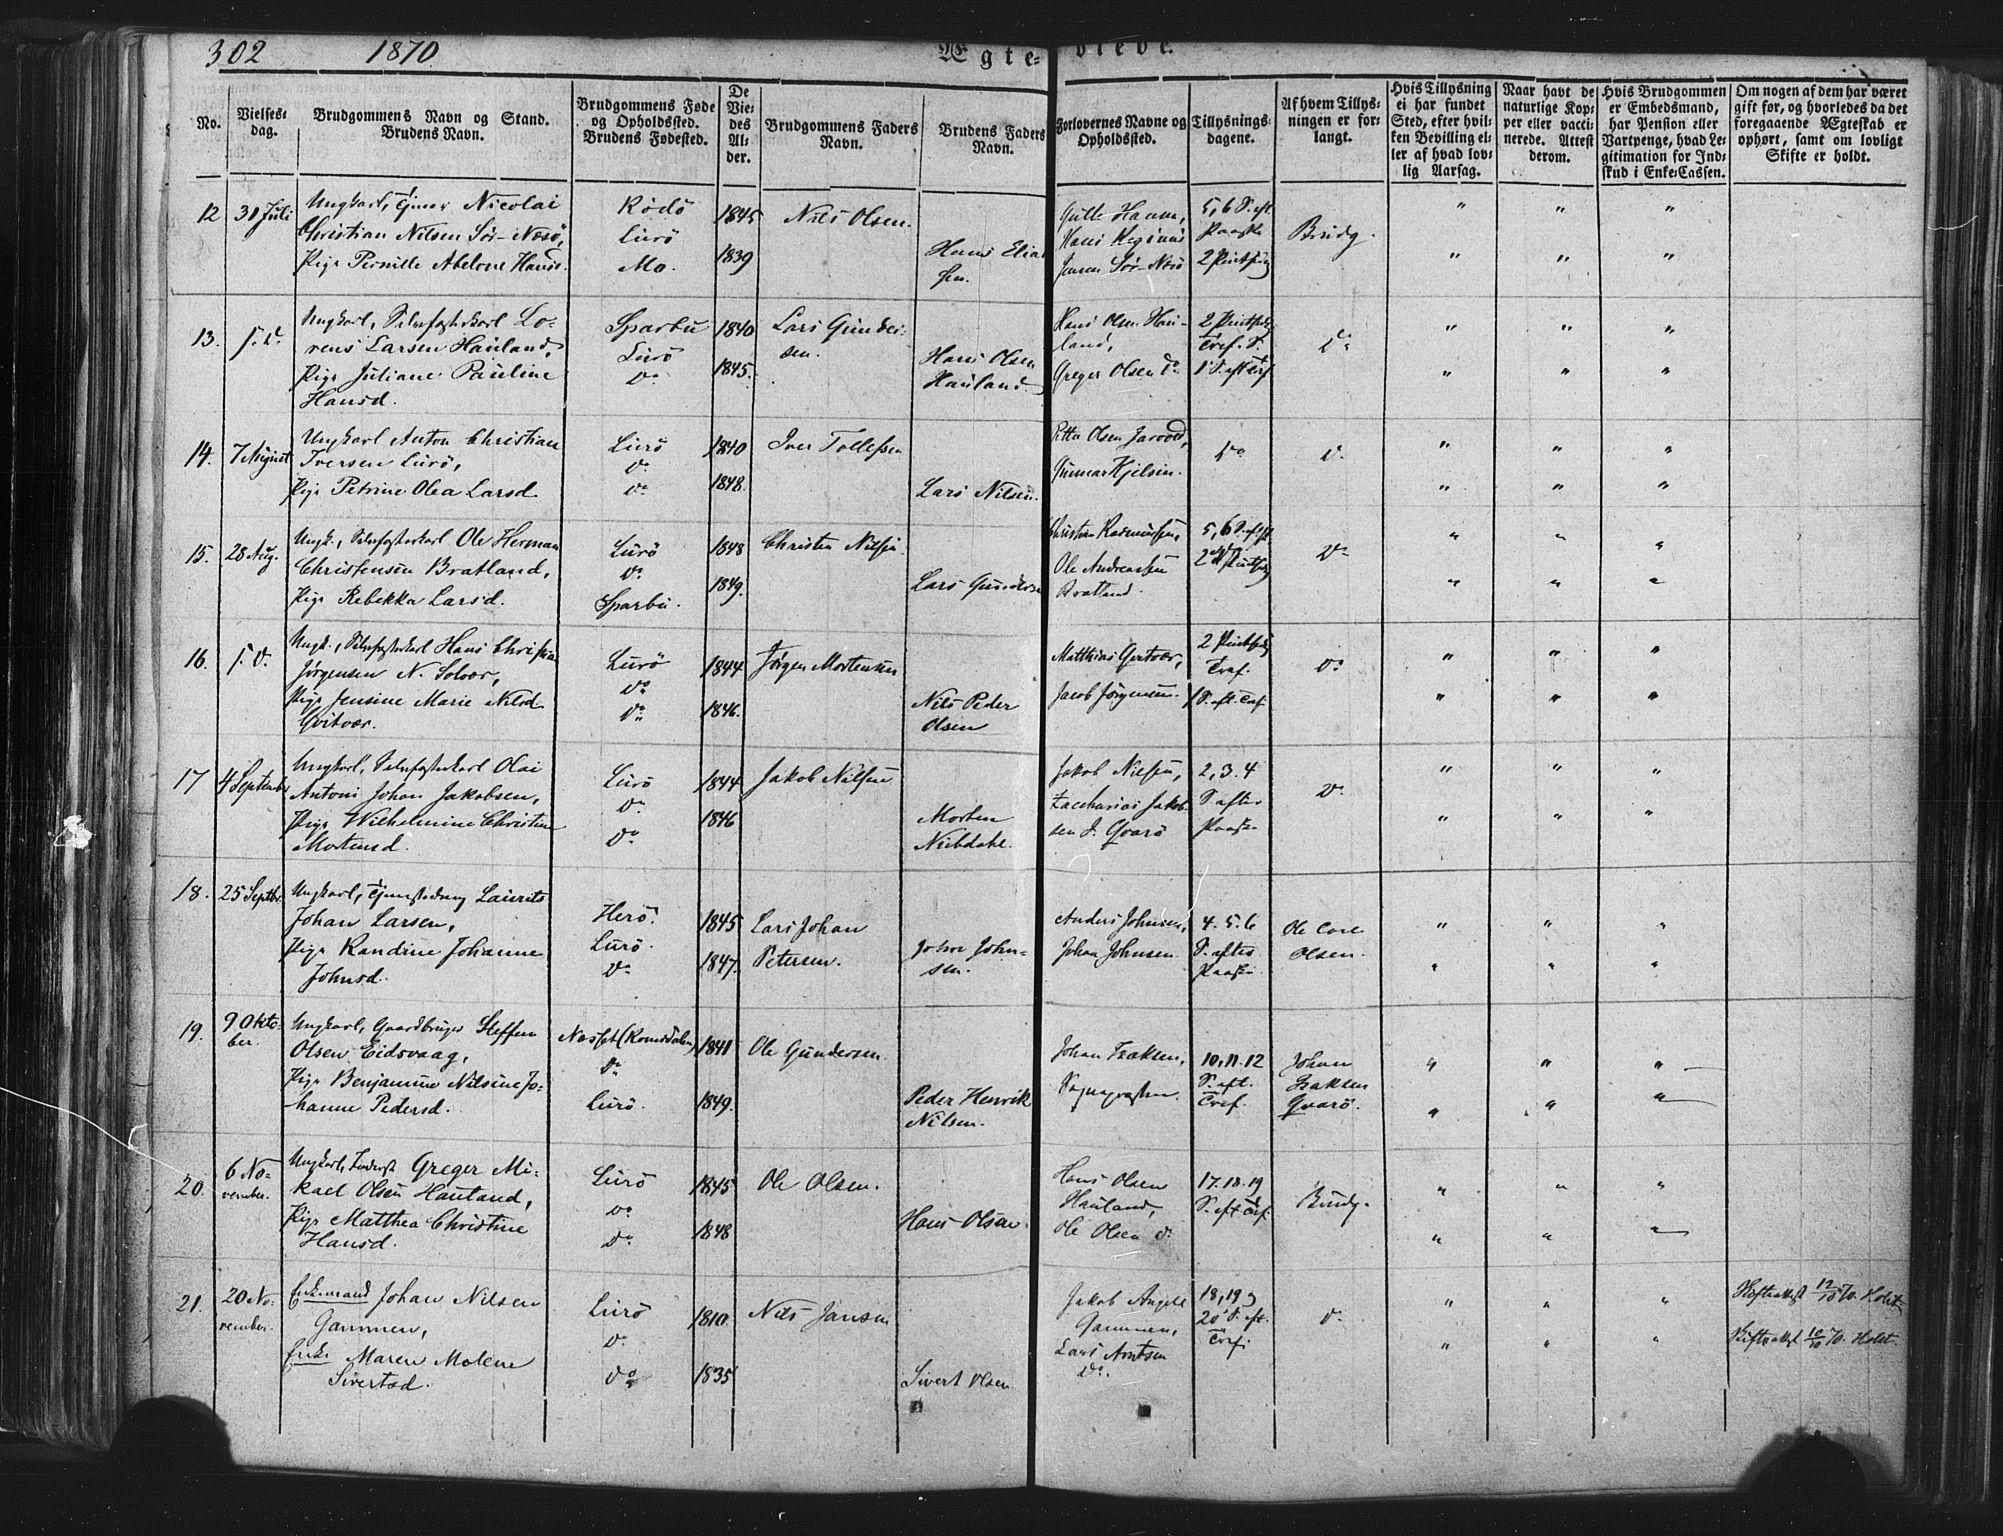 302 1870 Ægte- viede.
No.
Vielses-
dag.
Brudgommens Navn og Stand.
Brudens Navn.
Brudgommens Føde
og Opholdssted.
Brudens Fødested.
De
Vie-
des
Al-
der.
Brudgommens Faders
Navn.
Brudens Faders
Navn.
Forlovernes Navne og
Opholdssted.
Tillysnings-
dagene.
Af hvem Tillys-
ningen er for-
langt.
Hvis Tillysning
ei har fundet
Sted, efter hvil-
ken Bevilling el-
ler af hvad lov-
lig Aarsag.
Naar havt de
naturlige Kop-
per eller vacci-
nerede. Attest
derom.
Hvis Brudgommen
er Embedsmand,
har Pension eller
Vartpenge, hvad Le-
gitimation for Ind-
skud i Enke-Cassen.
Om nogen af dem har været
gift før, og hvorledes da det
foregaaende Ægteskab er
ophørt, samt om lovligt
Skifte er holdt.
12 31 Juli
Ungkarl, Tjener Nicolai
Christian Nilsen Sør-Nesø,
Pige Pernille Abelone Hansd.
Rødø
Lurø
Mo.
1845
1839
Nils Olsen.
Hans Elias
sen.
Hans Reginus
Jensen Sør-Nesø
5, 6 S. eft.
Paaske
2 Pintsedag
Brudg.
" " "
" " "
13. s. D.
Ungkarl, Selvfosterkarl Lo-
rens Larsen Hauland,
Pige Juliane Pauline
Hansd.
Sparbu
Lurø
Do
1840
1845.
Lars Gunder-
sen.
Hans Olsen
Hauland
Hans Olsen Hau-
land,
Greger Olsen Do
2 Pintsedag
Tref. S.
1 S. eft Tref
Do
" " "
" " "
14. 7 August
Ungkarl Anton Christian
Iversen Lurø,
Pige Petrine Olea Larsd.
Lurø
Do
Do
1840
1848.
Iver Tollefsen
Lars Nilsen.
Petter Olsen
Gunnar Kjelsen.
Do
Do
" " "
" " "
15. 28 Aug.
Ungk., Selvfosterkarl Ole Herman
Christensen Bratland,
Pige Rebekka Larsd.
Lurø
Do
Sparbu.
1848
1849.
Christen Nilsen.
Lars Gundersen
Christian Rasmussen,
Ole Andreassen
Bratland.
5, 6 S. eft
2 Pintsedag
Do
" " "
" " "
16. s. D.
Ungk., Selvfosterkarl Hans Christian
Jørgensen N. Solvær,
Pige Jensine Marie Nilsd.
Gvitvær.
Lurø
Do
Do
1844
1846.
Jørgen Mortensen
Nils Peder
Olsen
Matthias
Jacob Jørgensen.
2 Pintsedag
Tref.
1 S. eft. Tref
Do
" " "
" " "
17 4 September
Ungkarl, Selvfosterkarl Olai
Antoni Johan Jakobsen,
Pige Wilhelmine Christine
Mortensd.
Lurø
Do
Do
1844
1846
Jakob Nilsen
Morten
Jakob Nielsen,
Zaccharias Jakob-
sen I. Qvarø
2, 3. 4
S. efter
Paaske
Do
" " "
" " "
18. 25 Septbr.
Ungkarl, Tjenestedreng Laurits
Johan Larsen,
Pige Randine Johanne
Johnsd.
Herø.
Lurø.
Do
1845
1847.
Lars Johan
Petersen.
John-
sen.
Anders Johnsen,
Johan Johnsen
4. 5. 6
S. efter
Paaske
Ole Carl
Olsen.
" " "
" " "
19. 9 Okto-
ber.
Ungkarl, Gaardbruger Steffen
Olsen Eidsvaag,
Pige Benjamine Nilsine Jo-
hanne Pedersd.
Nesset (Romsdalen)
Do
Lurø.
1841
1849.
Ole Gundersen
Peder Henrik
Nilsen.
Johan Isaksen,
Sognepresten.
10, 11. 12
S. eft.
Tref.
Johan
Isaksen
Qvarø.
" " "
" " "
20. 6 No-
vember.
Ungkarl, Inderst Greger Mi-
kael Olsen Hauland,
Pige Matthea Christine
Hansd.
Lurø
Do
Do
1845
1848
Ole Olsen.
Hans Olsen.
Hans Olsen
Hauland,
Ole Olsen Do
17. 18. 19
S. eft Tref.
Brudg.
" " "
" " "
21. 20 No-
vember.
Enkemand Johan Nilsen
Gammen,
Enke Maren Malene
Sivertsd.
Lurø
Do
Do
1810.
1835
Nils Jansen
Sivert Olsen
Jakob Angell
Gammen,
Lars Arntsen
Do.
18, 19 og
20 S. eft.
Tref.
Do
" " "
" " "
Skifteattest 12/10 70. Holst
Skifteattest 10/10 70. Holst.